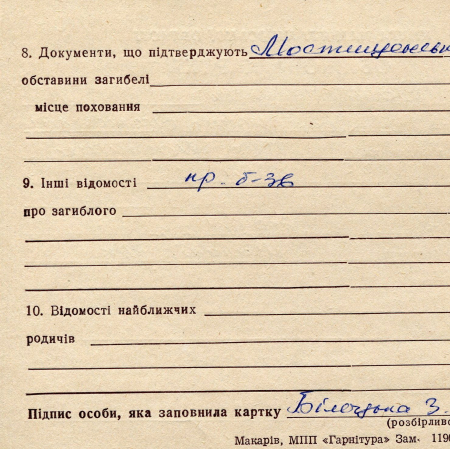 8. Документи, що підтверджують
обставини загибелі
місце поховання
9. Інші відомості пр. б-зв
про загиблого
10. Відомості найближчих
родичів
Підпис особи, яка заповнила картку Білецька З.
(розбірливо
Макарів, МПП «Гарнітура» Зам. 1190